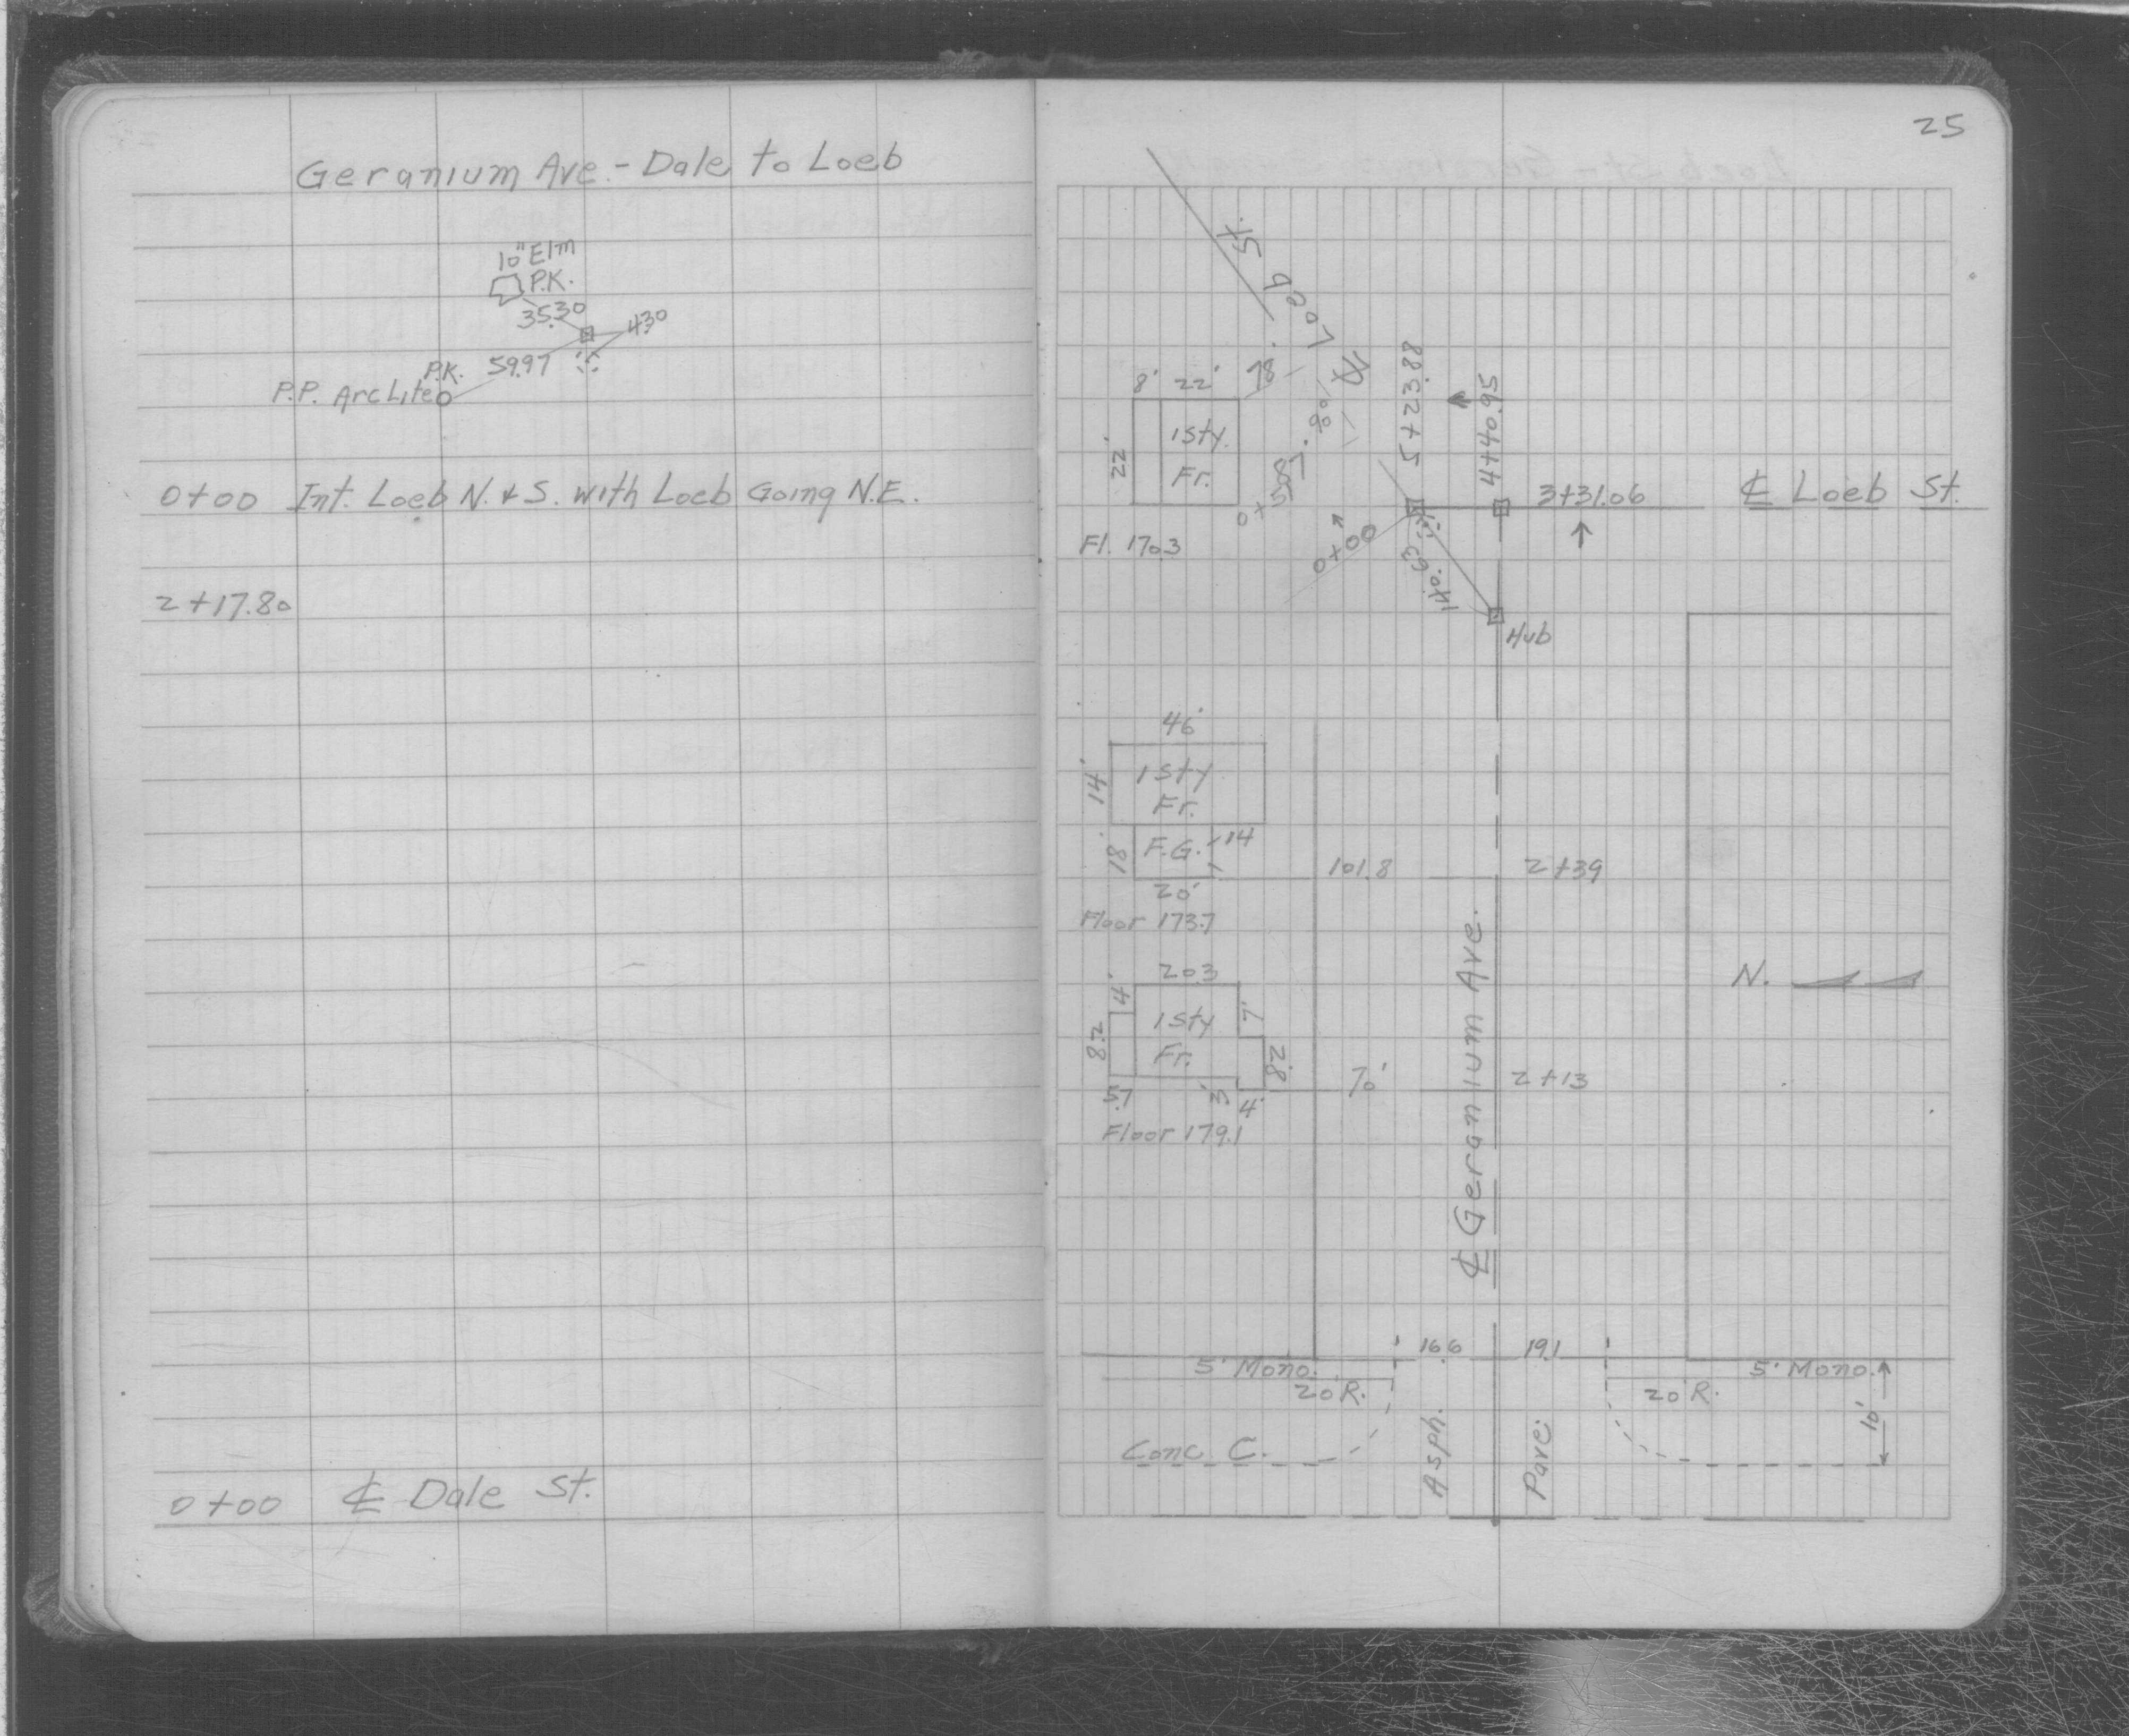 Geranium Ave. - Dale to Loeb
10" Elm
P.K.
35.30
4.30
P.K. 59.97
P.P. Arc Lite
0+00 Int. Loeb N. & S. with Loeb Going N.E.
2+17.80
0+00 ℄ Dale St.
25
℄ Loeb St.
8' 22'
78.
80
22'
1 Sty.
Fr.
5+23.88
4+40.95
3+31.06
℄ Loeb St.
Fl. 170.3
0+00
140.63
Hub
46'
14'
1 Sty
Fr.
18'
F.G. 14
20'
101.8
2+39
Floor 173.7
20.3
4'
1 Sty
7'
8.2
Fr.
8.2
5.7
3'
4'
70'
2+13
Floor 179.1
N.
℄ Geranium Ave.
16.6
19.1
5' Mono.
5' Mono.
20 R.
20 R.
10'
Conc. C.
Asph.
Pave.